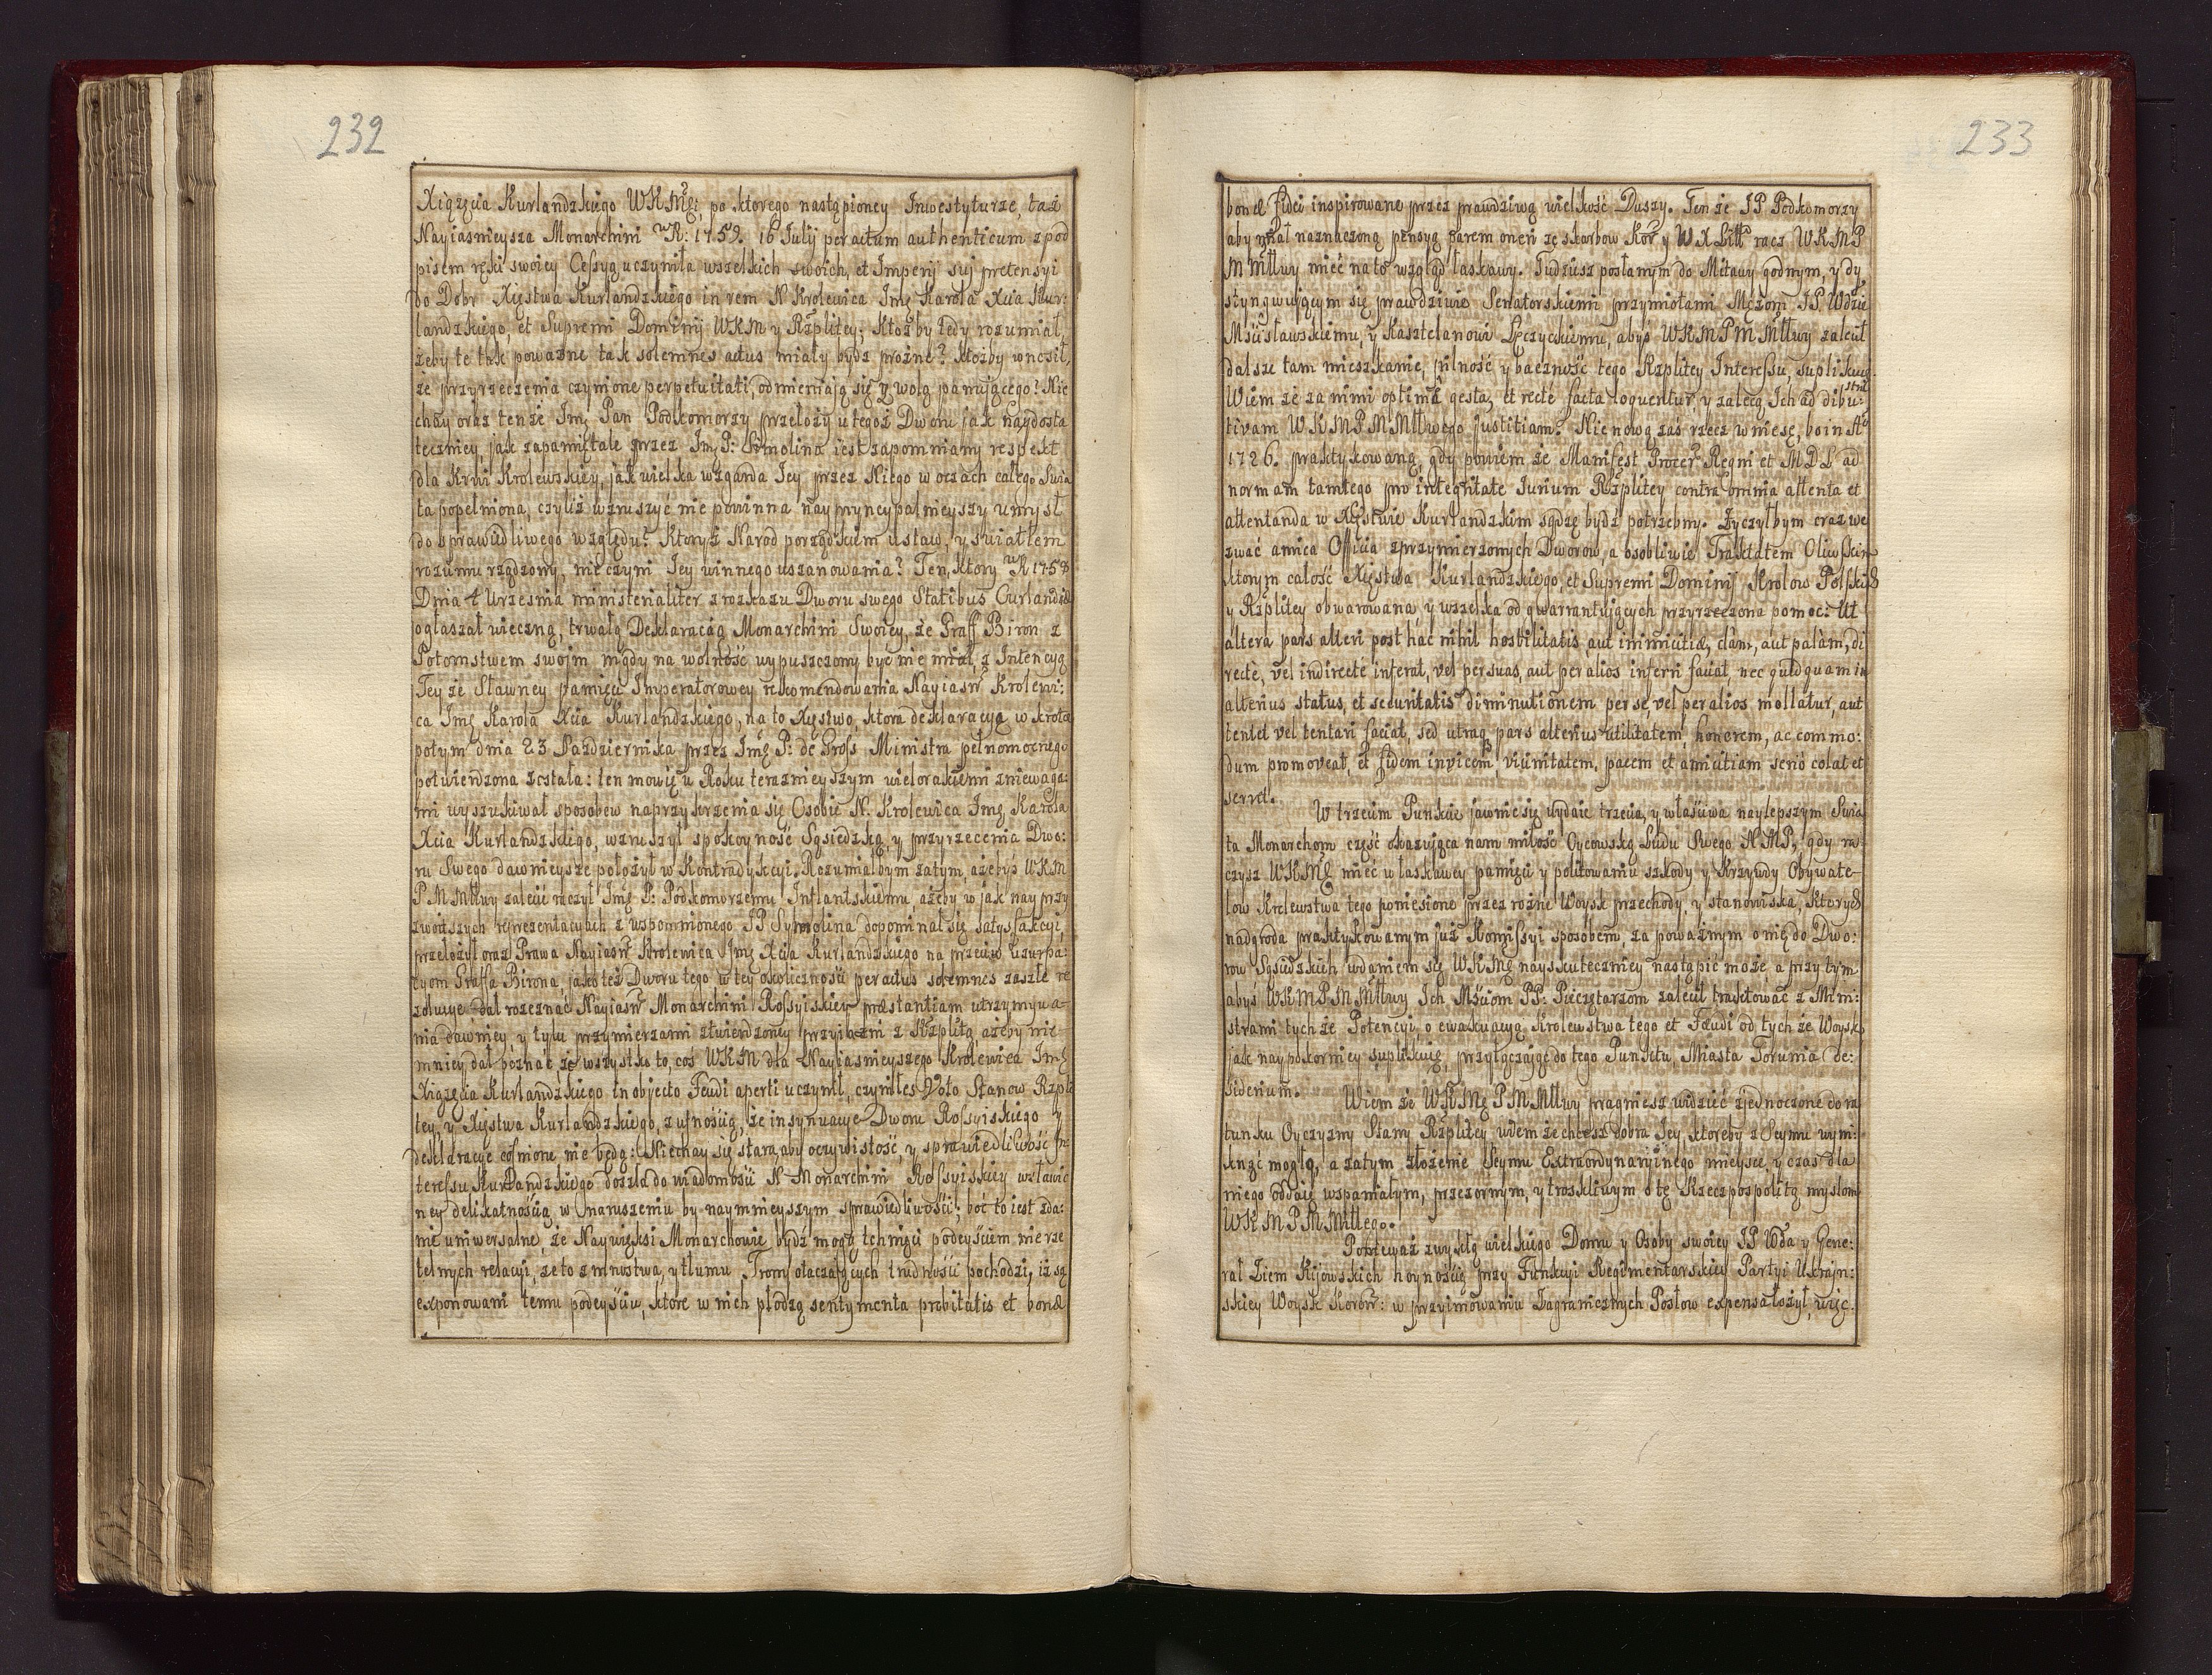 232
Xiązęcia Kurlandzkiego WKMć; po ktorego nastąpioney Inwestyturze, taż
Nayiasnieysza Monarchini wR: 1759. 16 Julij peractum authenticum z pod
pisem ręki swoiey Cessyą uczyniła wszelkich swoich, et Imperij sui pretensyi
do Dobr Xięstwa Kurlandzkiego in rem N Krolewica Imę Karola Xcia Kur:
landzkiego, et Supremi Dominij WKM y Rzplitey; Ktożby tedy rozumiał,
żeby te tak poważne tak solemnes actus miały bydz prożne? ktożby wnosił,
że przyrzeczenia czynione perpetuitati, odmieniaią się z wolą panuiącego? Nie
chay oraz tenże Imę Pan Podkomorzy przełoży u tegoż Dworu jak naydosta
teczniey, jak zapamiętale przez Imę P: Simolina iest zapomniany respekt
dla Krwi Krolewskiey, jak wielka wzgarda Jey przez Niego w oczach całego Swia
ta popełniona, czyliż wzruszyć nie powinna naypryncypalnieyszy umysł
do sprawiedliwego względu? Ktoryż Narod porządkiem ustaw, y swiatłem
rozumu rządzony, nie czyni Jey winnego uszanowania? Ten, ktory wR 1758
Dnia 4 Wrzesnia ministerialiter z rozkazu Dworu swego Statibus Curlandiæ
ogłaszał wieczną, trwałą Deklaracyą Monarchini Swoiey, że Graff Biron z
Potomstwem swoim nigdy na wolność wypuszczony być nie miał, z Intencyą
Teyże Sławney pamięci Imperatorowey rekomendowania Nayiasń Krolewi:
ca Imę Karola Xcia Kurlandzkiego, na to Xięstwo, ktora deklaracya w krotce
potym dnia 23 Pazdziernika przez Imę P: de Gross Ministra pełnomocnego
potwierdzona została: ten mowię w Roku teraznieyszym wielorakiemi zniewaga:
mi wyszukiwał sposobow naprzykrzenia się Osobie N. Krolewica Imę Karola
Xcia Kurlandzkiego, wzruszył spokoyność Sąsiedzką, y przyrzeczenia Dwo:
ru Swego dawnieysze położył w Kontradykcyi. Rozumiałbym zatym, ażebyś WKM
PMMłłwy zalecić raczył Imę P: Podkomorzemu Inflantskiemu, ażeby w jak nayprzy
zwoitszych reprezentacyach z wspomnionego JP Symolina dopominał się satysfakcyi,
przełożył oraz Prawa Nayiasń Krolewica Imę Xcia Kurlandzkiego na przeciw Uzurpa:
cyom Graffa Birona, jako też Dworu tego w tey okoliczności peractus solemnes zaszłe re
zolucye dał rozeznać Nayiasń Monarchini Rossyiskiey præstantiam utrzymywa-
nia dawney, y tylu przymierzami stwierdzoney przyiazni z Rzplitą, ażeby nie-
mniey dał poznać że wszystko to, coś WKM dla Nayiasnieyszego Krolewica Imę
Xiązęcia Kurlandzkiego in objecto Feudi aperti uczynił, czyniłeś Voto Stanow Rzpli
tey, y Xięstwa Kurlandzkiego, z ufnością, że insynuacye Dworu Rossyiskiego y
deklaracye cofnione nie będą: Niechay się stara, aby oczywistość, y sprawiedliwość In
teressu Kurlandzkiego doszła do wiadomości N Monarchini Rossyiskiey wsławio
ney delikatnością, w naruszeniu by naymnieyszym sprawiedliwości; boć to iest zda:
nie uniwersalne, że Naywięksi Monarchowie bydź mogą tchnięci podeyściem nierze
telnych relacyi, że to z mnostwa, y tłumu Trony otaczaiących trudności pochodzi, iż są
exponowani temu podeyściu, ktore w nich płodzą sentymenta probitatis et bonæ
233
bonæ fidei inspirowane przez prawdziwą wielkość Duszy. Tenże JP Podkomorzy
aby miał naznaczoną pensyą parem oneri ze skarbow Kor y WXLitt racz WKMP
MMłłwy mieć na to wzgląd łaskawy. Tudziesz posłanym do Mitawy godnym, y dy
styngwuiącym się prawdziwie Senatorskiemi przymiotami Mężom JP. Wdzie
Mścisławskiemu, y Kasztelanowi Łęczyckiemu, abyś WKMPMMłłwy zalecił
dalsze tam mieszkanie, pilność y baczność tego Rzplitey Interessu, suplikuię.
Wiem że za nimi optimè gesta, et rectè facta loquentur, y zalecą Ich ad distribu:
tivam WKMPMMłłwego Justitiam. Nienową zaś rzecz wniesę, bo in Aº
1726. praktykowaną, gdy powiem że Manifest Procer Regni et MDL ad
normam tamtego pro integritate Jurium Rzplitey contra omnia attenta et
attentanda w Xięstwie Kurlandzkim sądzę bydź potrzebny. Życzyłbym oraz we
zwać amica Officia sprzymierzonych Dworow, a osobliwie Traktatem Oliwskim
ktorym całość Xięstwa Kurlandzkiego, et Supremi Dominij Krolow Polskich
y Rzplitey obwarowana, y wszelka od gwarantuiących przyrzeczona pomoc: Ut
altera pars alteri post hac nihil hostilitatis aut inimicitiæ, clàm, aut palàm, di
rectè, vel indirectè inferat, vel per suos, aut per alios inferri faciat, nec quidquam in
alterius status, et securitatis diminutionem per se, vel per alios moliatur, aut
tentet vel tentari faciat, sed utraq pars alterius utilitatem, honorem, ac commo:
dum promoveat, et fidem invicem, vicinitatem, pacem et amicitiam seriò colat et
servet.
W trzecim Punkcie jawnie się wydaie trzecia, y własciwa naylepszym Swia
ta Monarchom część okazuiąca nam miłość Oycowską Ludu Swego NMP, gdy ra
czysz WKMć mieć w łaskawey pamięci y politowaniu szkody y Krzywdy Obywate-
low Krolewstwa tego poniesione przez rożne Woysk przechody, y stanowiska, Ktorych
nadgroda praktykowanym już Komissyi sposobem za poważnym o nię do Dwo:
row Sąsiedzkich udaniem się WKMć nayskuteczniey nastąpić może a przytym
abyś WKMPMMłłwy Ich Mściom PP: Pieczętarzom zalecił traktować z Mini:
strami tychże Potencyi, o ewakuacyą Krolewstwa tego et Feudi od tychże Woysk,
jak naypokorniey suplikuię, przyłączaiąc do tego Punktu, Miasta Torunia de:
siderium. Wiem że WKMć PMMłłwy pragniesz widzieć zjednoczone do ra
tunku Oyczyzny Stany Rzplitey, wiem że chcesz dobra Jey, ktoreby z Seymu wyni:
knąć mogło, a zatym złożenie Seymu Extraordynaryinego mieysce, y czas dla
niego oddaię wspaniałym, przezornym, y troskliwym o tę Rzeczpospolitą myslom
WKMPMMłłego.
Ponieważ zwykłą wielkiego Domu y Osoby swoiey JP Wda y Gene:
rał Ziem Kijowskich hoynością przy Funkcyi Regimentarskiey Partyi Ukrain:
skiey Woysk Koron: w przyimowaniu Zagranicznych Posłow expensa łożył, więc.